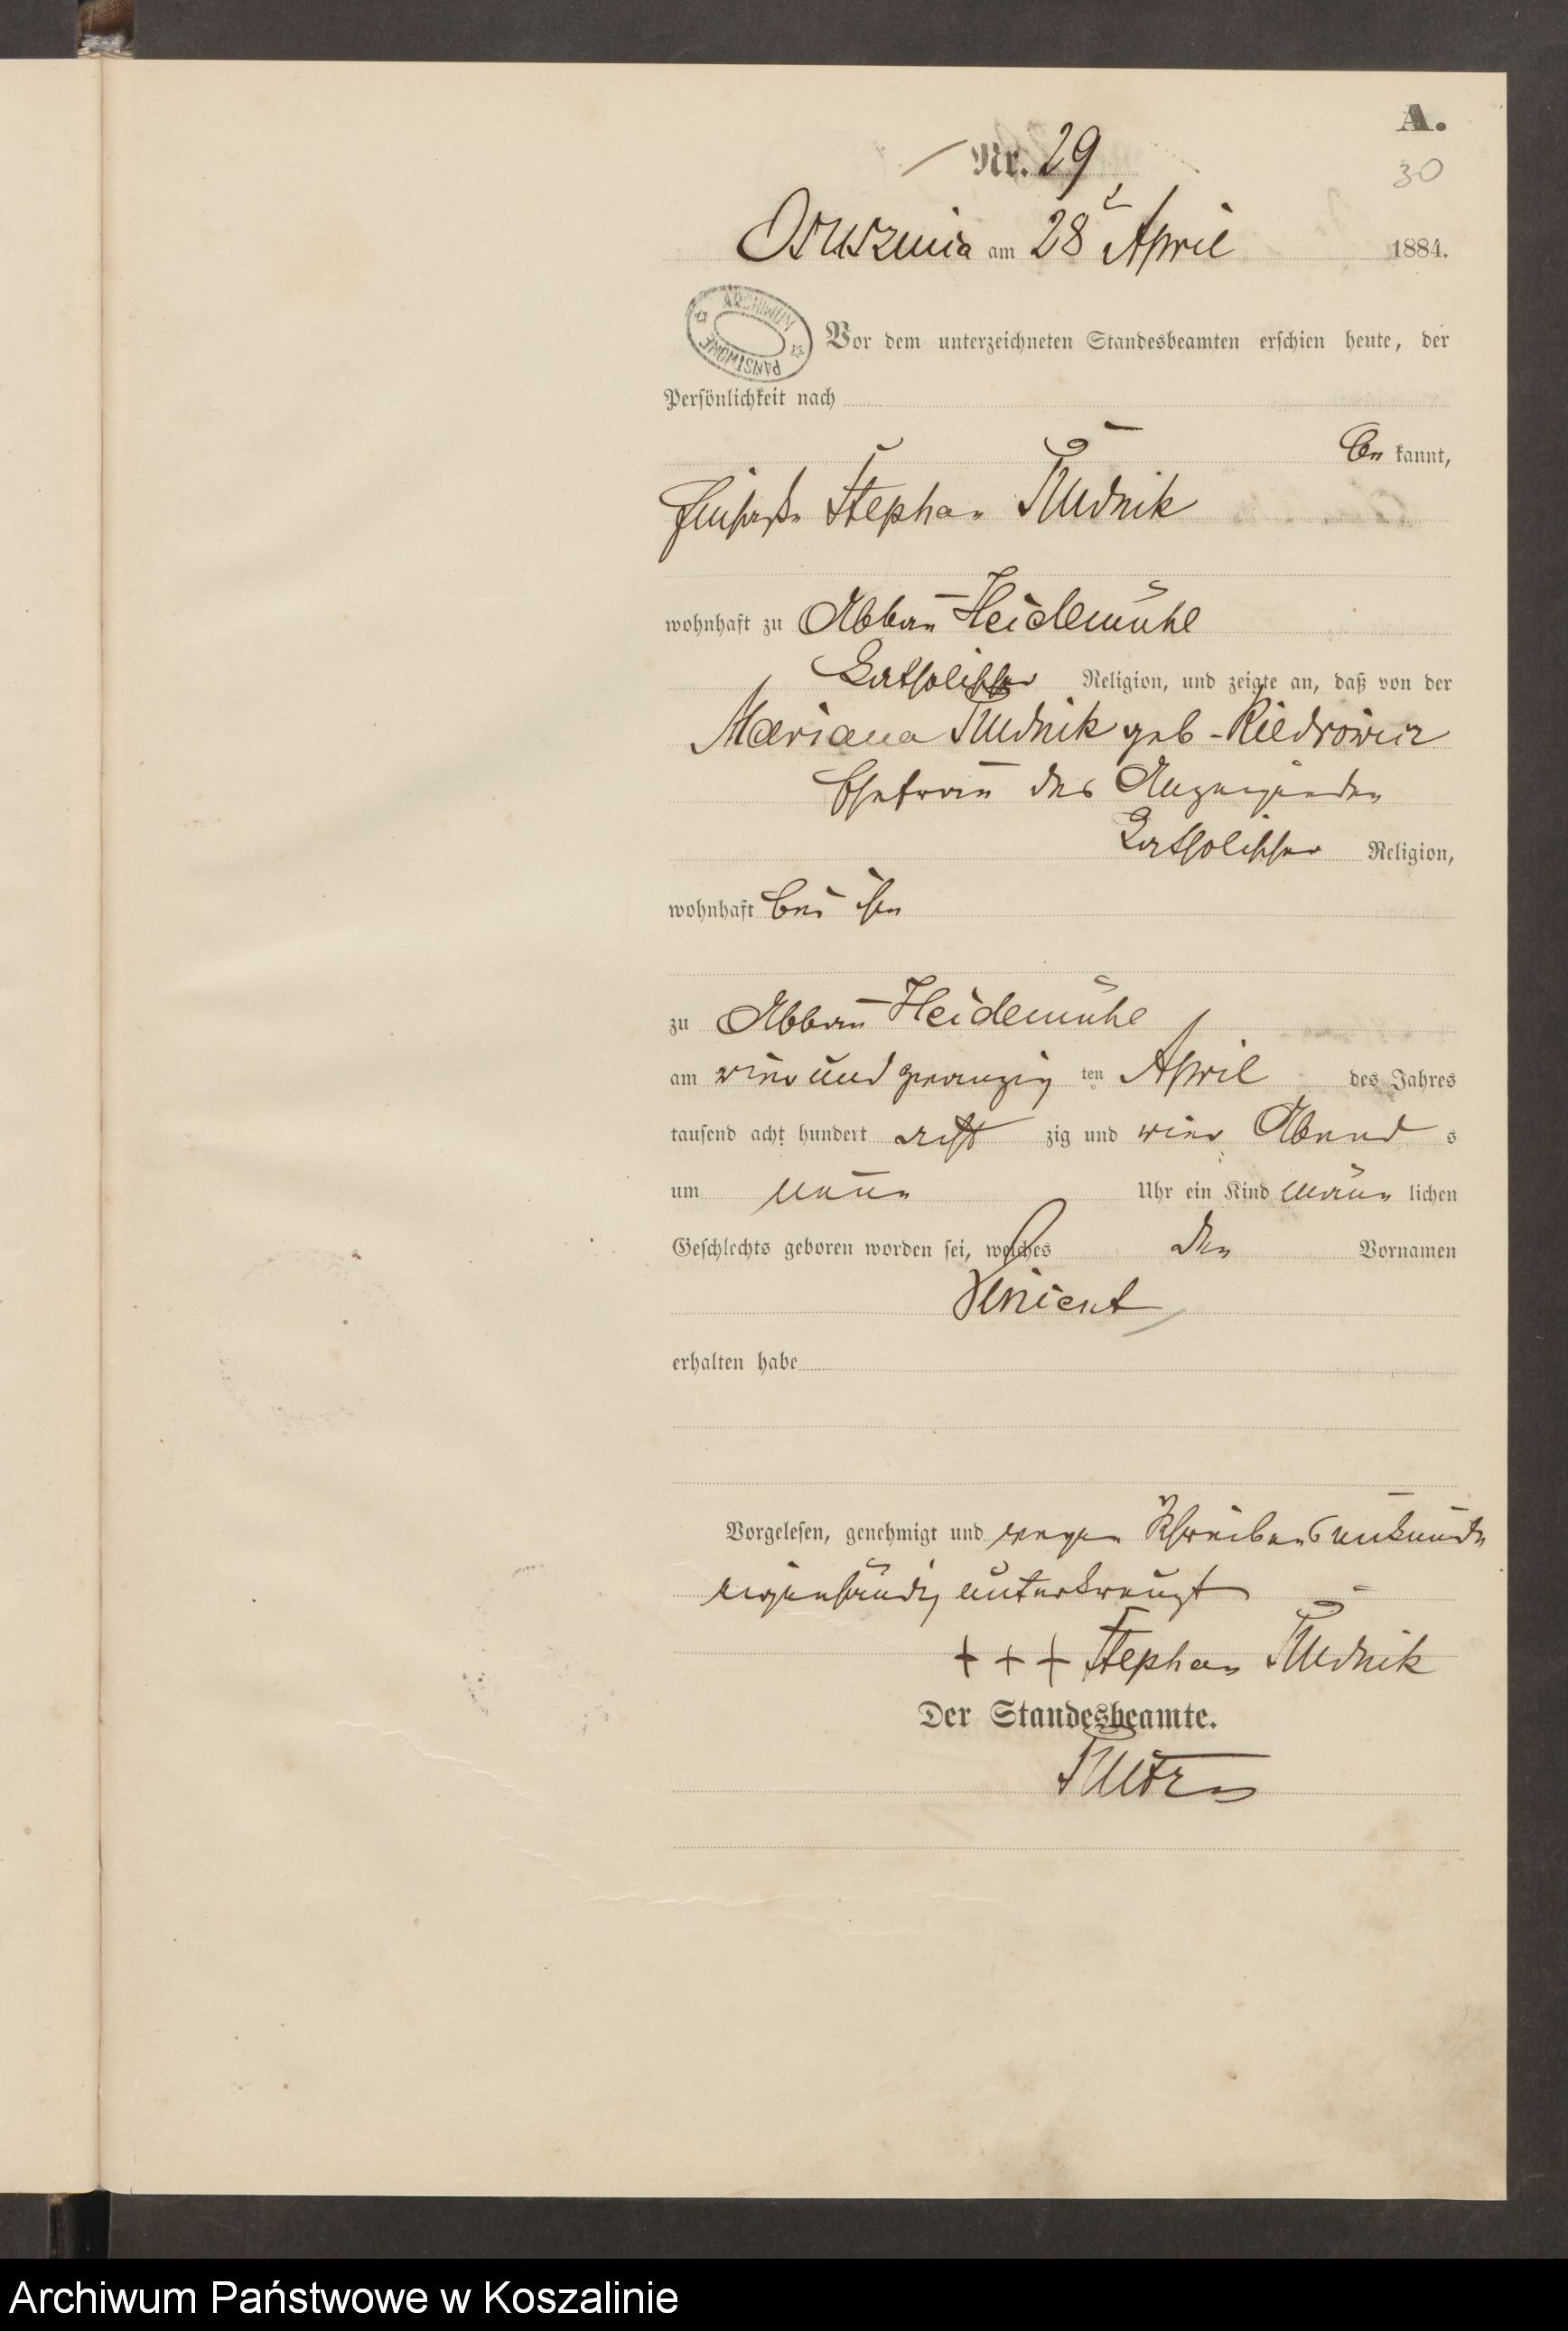 A.
Nr. 29
30
Osuszniza am 28t April 1884.
ARCHIWUM PAŃSTWOWE
Vor dem unterzeichneten Standesbeamten erschien heute, der
Persönlichkeit nach
be kannt,
Stephan Rudnik
wohnhaft zu Abbau Heidemühl
katholischer Religion, und zeigte an, daß von der
Mariana Rudnik geb-
Ehefrau des Anzeigenden
katholischer Religion,
wohnhaft bei ihm
zu Abbau Heidemühl
am vierundzwanzig ten April des Jahres
tausend acht hundert acht zig und vier Abend s
um neun Uhr ein Kind männ lichen
Geschlechts geboren worden sei, welches den Vornamen
Vincent
erhalten habe
Vorgelesen, genehmigt und wegen Schreibensunkunde
eigenhändig unterkreuzt
+ + + Stephan Rudnik
Der Standesbeamte.
Archiwum Państwowe w Koszalinie